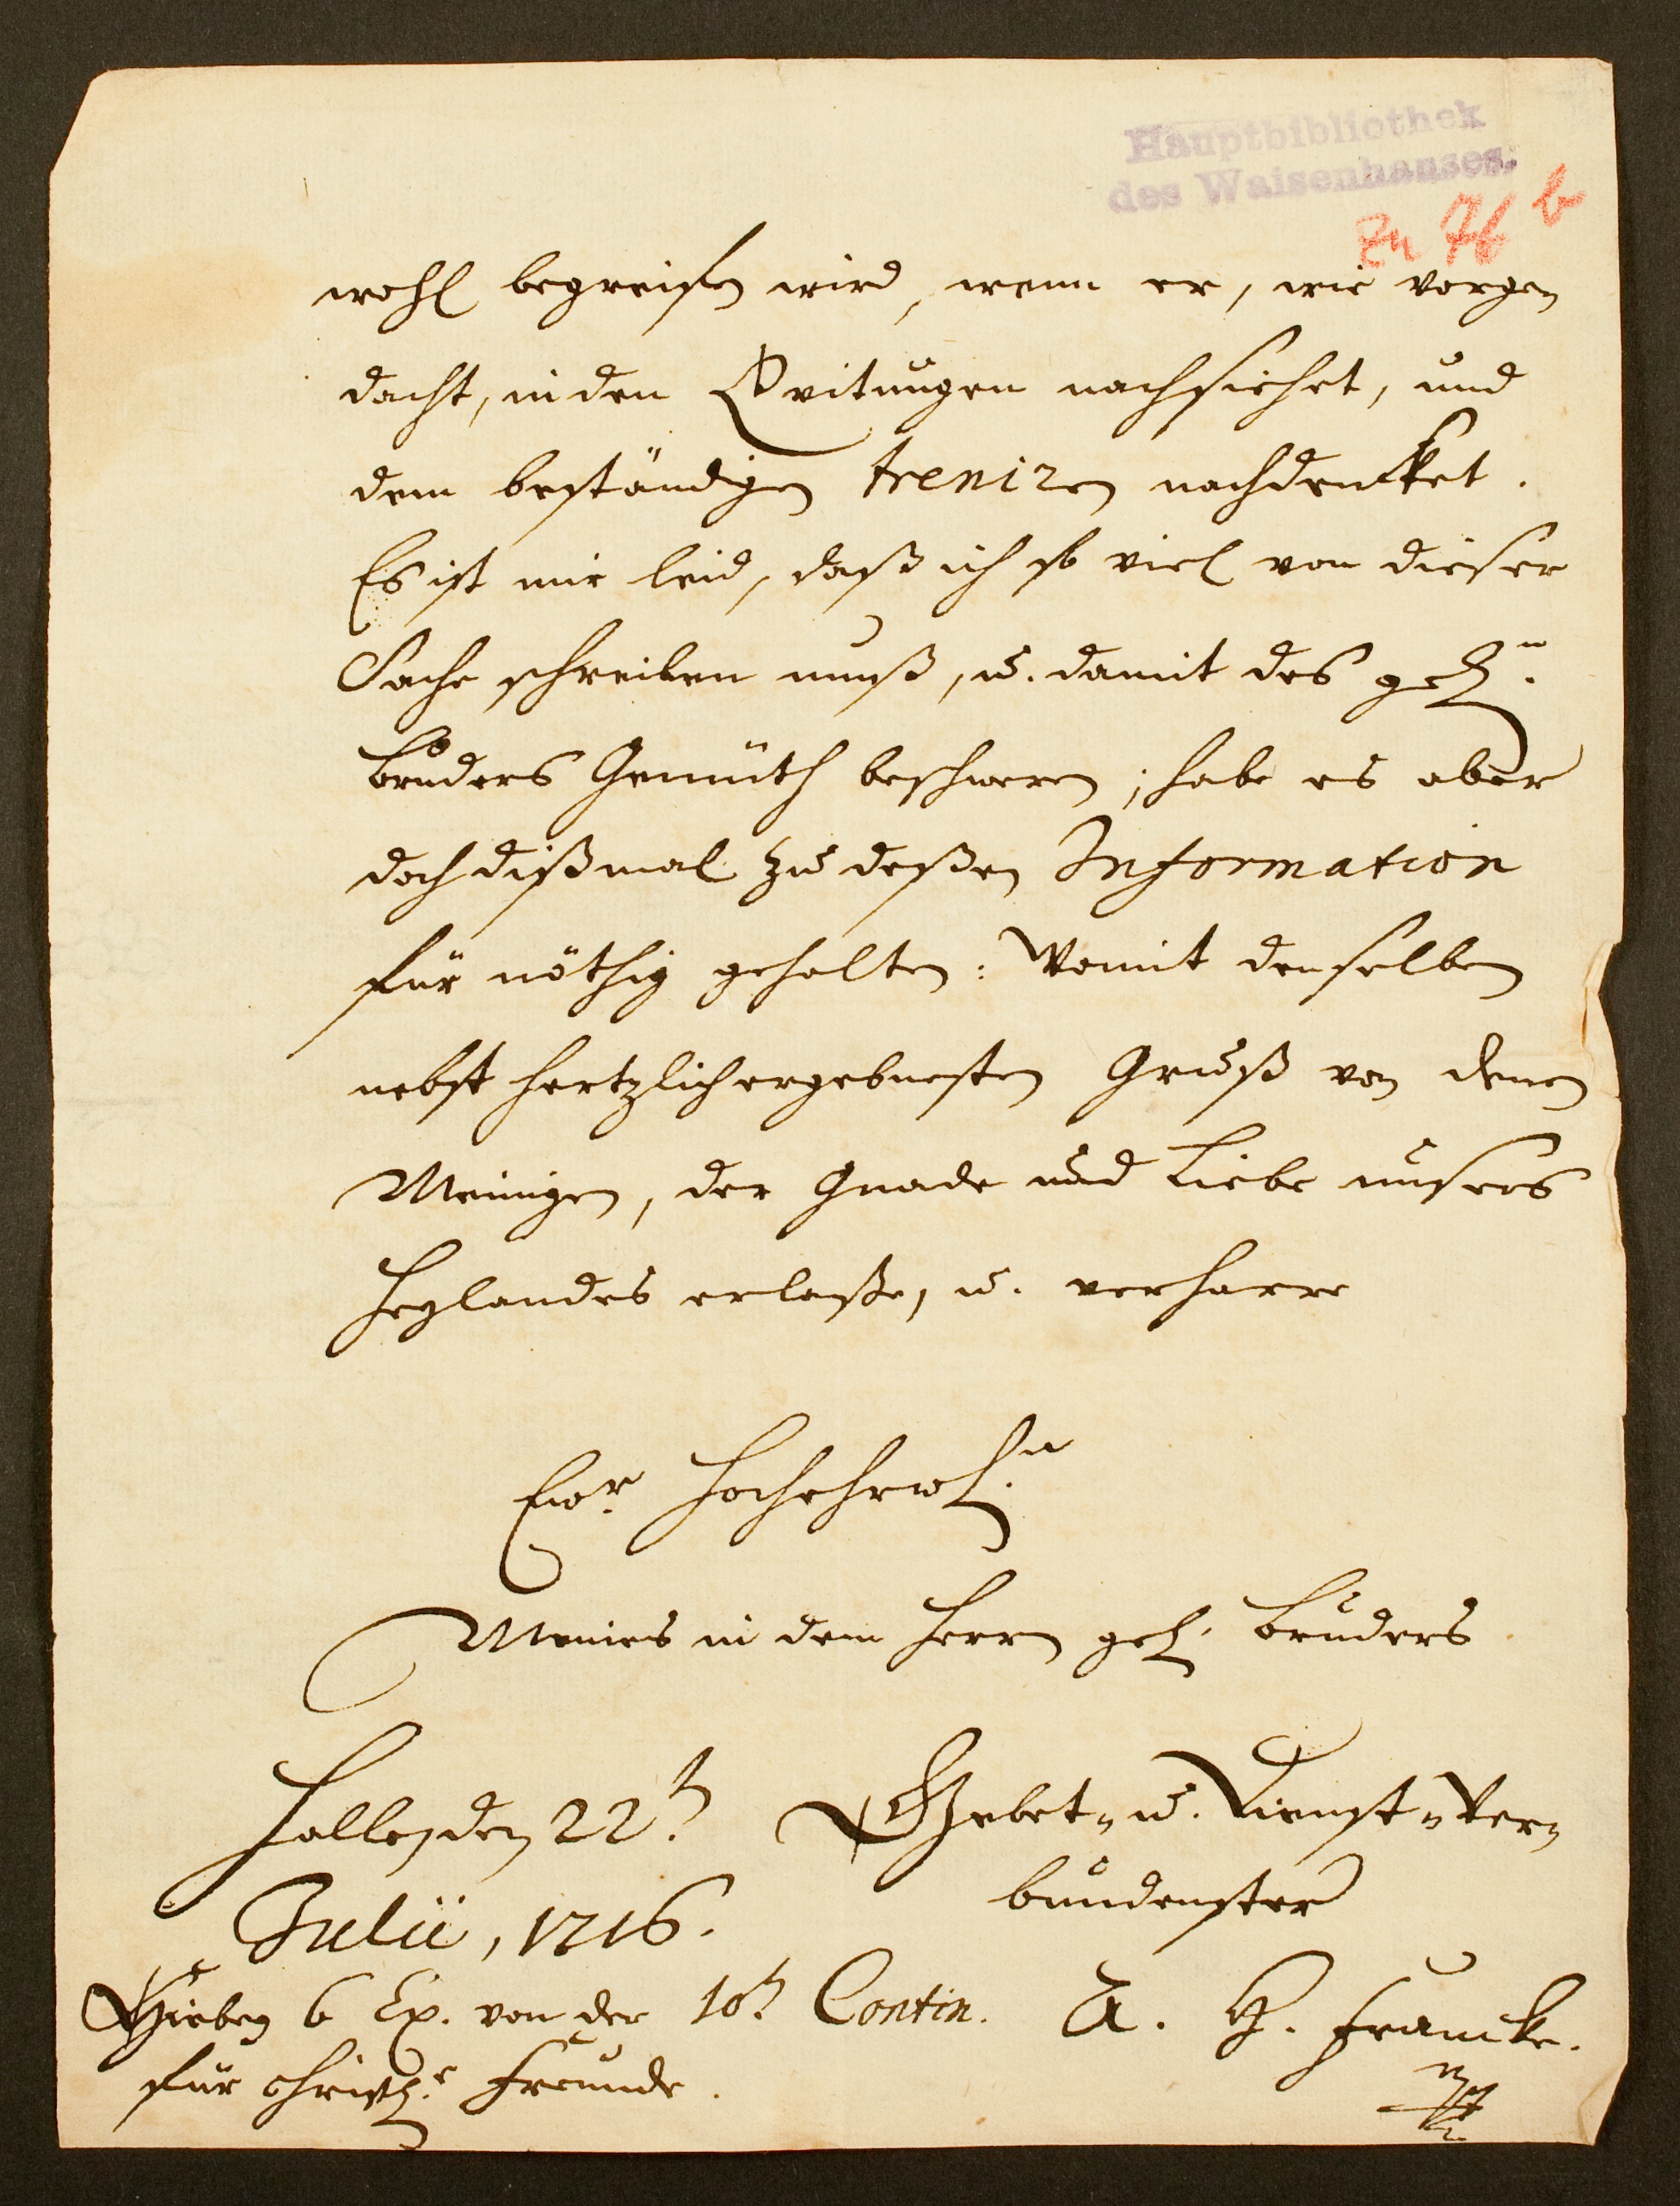 Hauptbibliothek
des Waisenhauses.
zu 76 b
wohl begreifen wird, wenn er, wie vorge=
dacht, in den Qvitungen nachsiehet, und
dem beständigen trenizen nachdencket.
Es ist mir leid, daß ich so viel von dieser
Sache schreiben muß, u. damit des gel.n
Bruders Gemüth beschweren; habe es aber
doch dißmal zu deßen Information
für nöthig gehalten: Womit denselben
nebst hertzlich ergebnesten Gruß von denen
Meinigen, der Gnade und Liebe unsers
Heylandes erlaße, u. verharre
Ewr. Hochehrwl.n
Meines in dem Herrn gel. Bruders
Halle, den 22.t
Gebet= u. Dienst=Ver=
Julii, 1716.
bundenster
Hiebey 6 Ex. von der 10.t Contin.
A. H. Francke.
für christl.e Freunde.